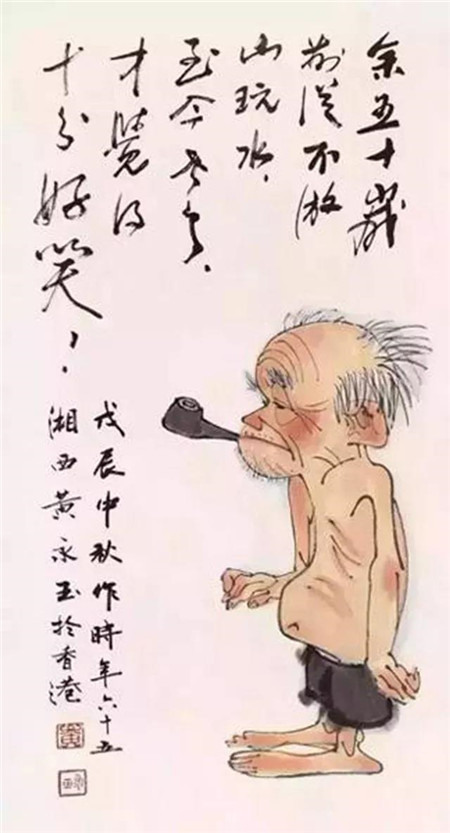 余五十歲
前從不游
山玩水,
至今老了,
才覺得
十分好笑!
戊辰中秋作時年六十五
湘西黄永玉於香港
黃